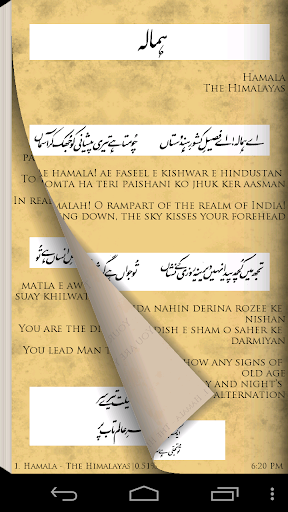 ہمالہ
HAMALA
THE HIMALAYAS
اے ہمالہ! اے فصیلِ کشورِ ہندوستاں چومتا ہے تیری پیشانی کو جھک کر آسماں
PA
TO E HAMALA! AE FASEEL E KISHWAR E HINDUSTAN
OMTA HA TERI PAISHANI KO JHUK KER AASMAN
IN REA MALAH! O RAMPART OF THE REALM OF INDIA!
NG DOWN, THE SKY KISSES YOUR FOREHEAD
تجھ میں کچھ پیدا نہیں دیرینہ روزی کے نشاں تو جواں ہے
MATLA E AW
SUAY KHILWAT
DA NAHIN DERINA ROZEE KE
NISHAN
YOU ARE THE DI DISH E SHAM O SAHER KE
DARMIYAN
YOU LEAD MAN T HOW ANY SIGNS OF
OLD AGE
AY AND NIGHT'S
ALTERNATION
1. HAMALA - THE HIMALAYAS 0.51% 6:20 PM